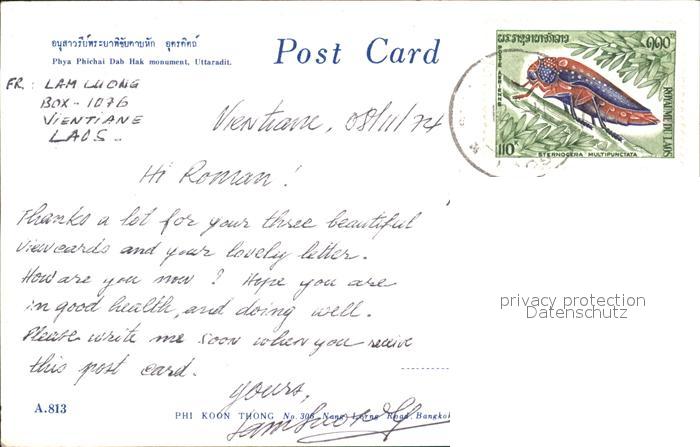 อนุสาวรีย์พระยาพิชัยดาบหัก อุตรดิตถ์
Phya Phichai Dab Hak monument, Uttaradit.
Post Card
FR: LAM LUONG
BOX-1076
VIENTIANE
LAOS-
ROYAUME DU LAOS
POSTE AERIENNE
110
STERNOCERA MULTIPUNCTATA
Vientiane, 08/11/74
Hi Roman!
Thanks a lot for your three beautiful
viewcards and your lovely letter.
How are you now? Hope you are
in good health, and doing well.
Please write me soon when you receive
this post card.
yours,
A.813
PHI KOON THONG No. 306 Nang Lerng Road, Bangkok
privacy protection
Datenschutz